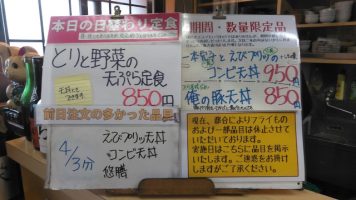 本日の日替わり定食
とりと野菜の
天ぷら定食
850円
前日注文の多かった品目
4/3分
えびプリッ天丼
コンビ天丼
悠膳
期間・数量限定品
コンビ天丼 950円
俺の豚天丼 850円
現在、都合によりフライもの
および一部品目は休止させて
いただいております。
実施日はこちらに品目を掲示
いたします。ご迷惑をお掛け
しますがご了承ください。